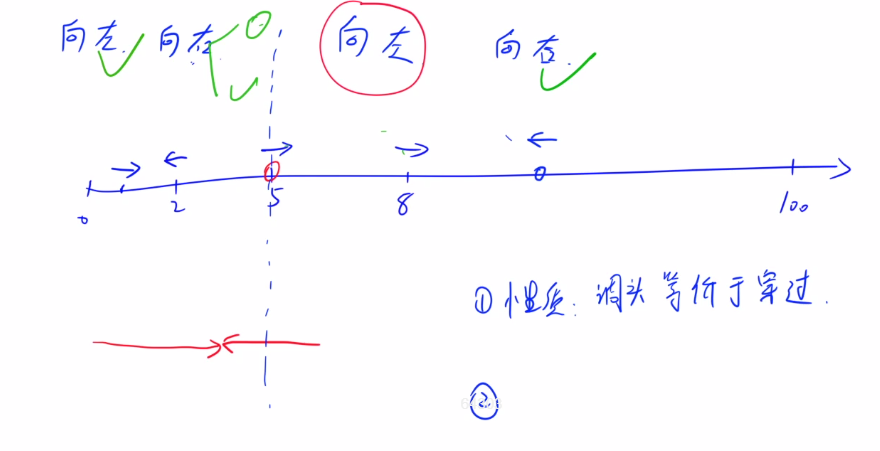 向左 向右 向左 向右
0 2 5 8 100
① 性质: 调头等价于穿过.
②